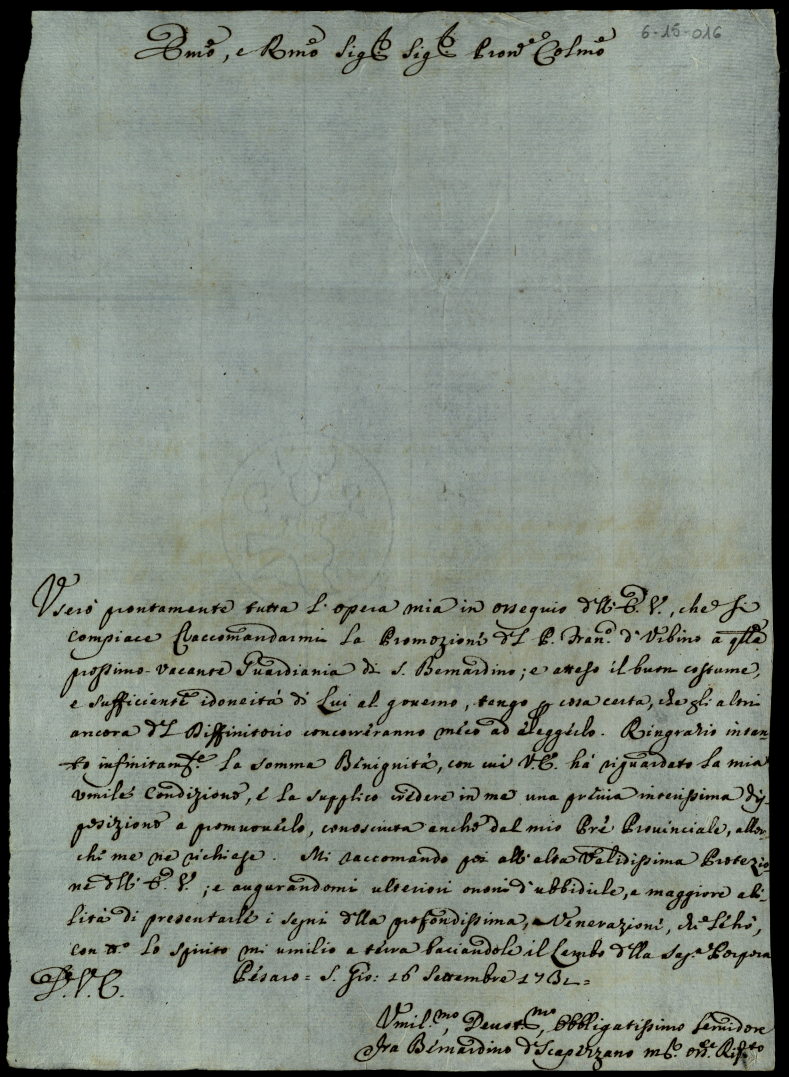 6-15-016
Emo, e Rmo Sigr Sigr Prone Colmo
Userò prontamente tutta l'opera mia in ossequio dell'E. V., che si
compiace raccomandarmi la Promozione del P. Franco d'Urbino a qlla
prossimo-vacante Guardiania di S. Bernardino; e atteso il buon costume,
e sufficiente idoneità di Lui al governo, tengo p cosa certa, che gli altri
ancora del Diffinitorio concorreranno meco ad eleggerlo. Ringrazio intan-
to infinitamte la somma Benignità, con cui V. E. hà riguardato la mia
umile Condizione, e la supplico credere in me una prévia interissima dis-
posizione a promuoverlo, conosciuta anche dal mio Pre Provinciale, allor-
che me ne richiese. Mi raccomando poi all'alta Validissima Protezio-
ne dell'E. V.; e augurandomi ulteriori onori d'ubbidirle, e maggiore abi-
lità di presentarle i segni della profondissima Venerazione, che le hò,
con tto lo spirito mi umilio a terra baciandole il Lembo della Saga Porpora
Pésaro = S. Gio: 16 Settembre
D. V. E.
Umilmo, Devotmo, Obbligatissimo Servidore
Fra Bernardino d'Scapezzano